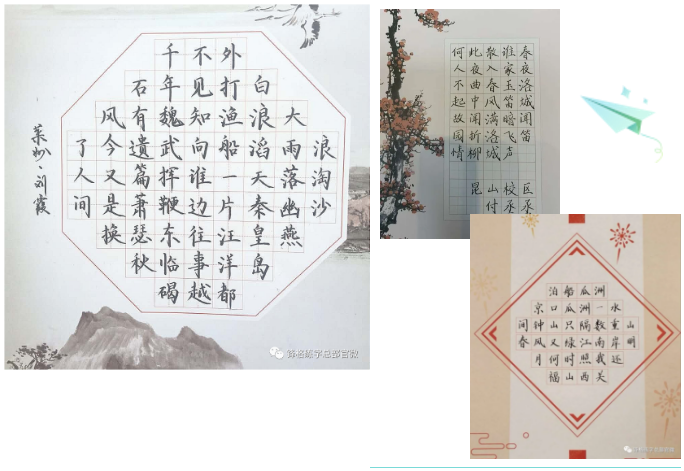 浪淘沙
大雨落幽燕
白浪滔天秦皇岛
外打渔船一片汪洋都
不见知向谁边往事越
千年魏武挥鞭东临碣
石有遺篇萧瑟秋
风今又是换
了人间
莱州·刘霞
春夜洛城闻笛
谁家玉笛暗飞声
散入春风满洛城
此夜曲中闻折柳
何人不起故园情
泊船瓜洲
京口瓜洲一水
间钟山只隔数重山
春风又绿江南岸明
月何时照我还
福山西关